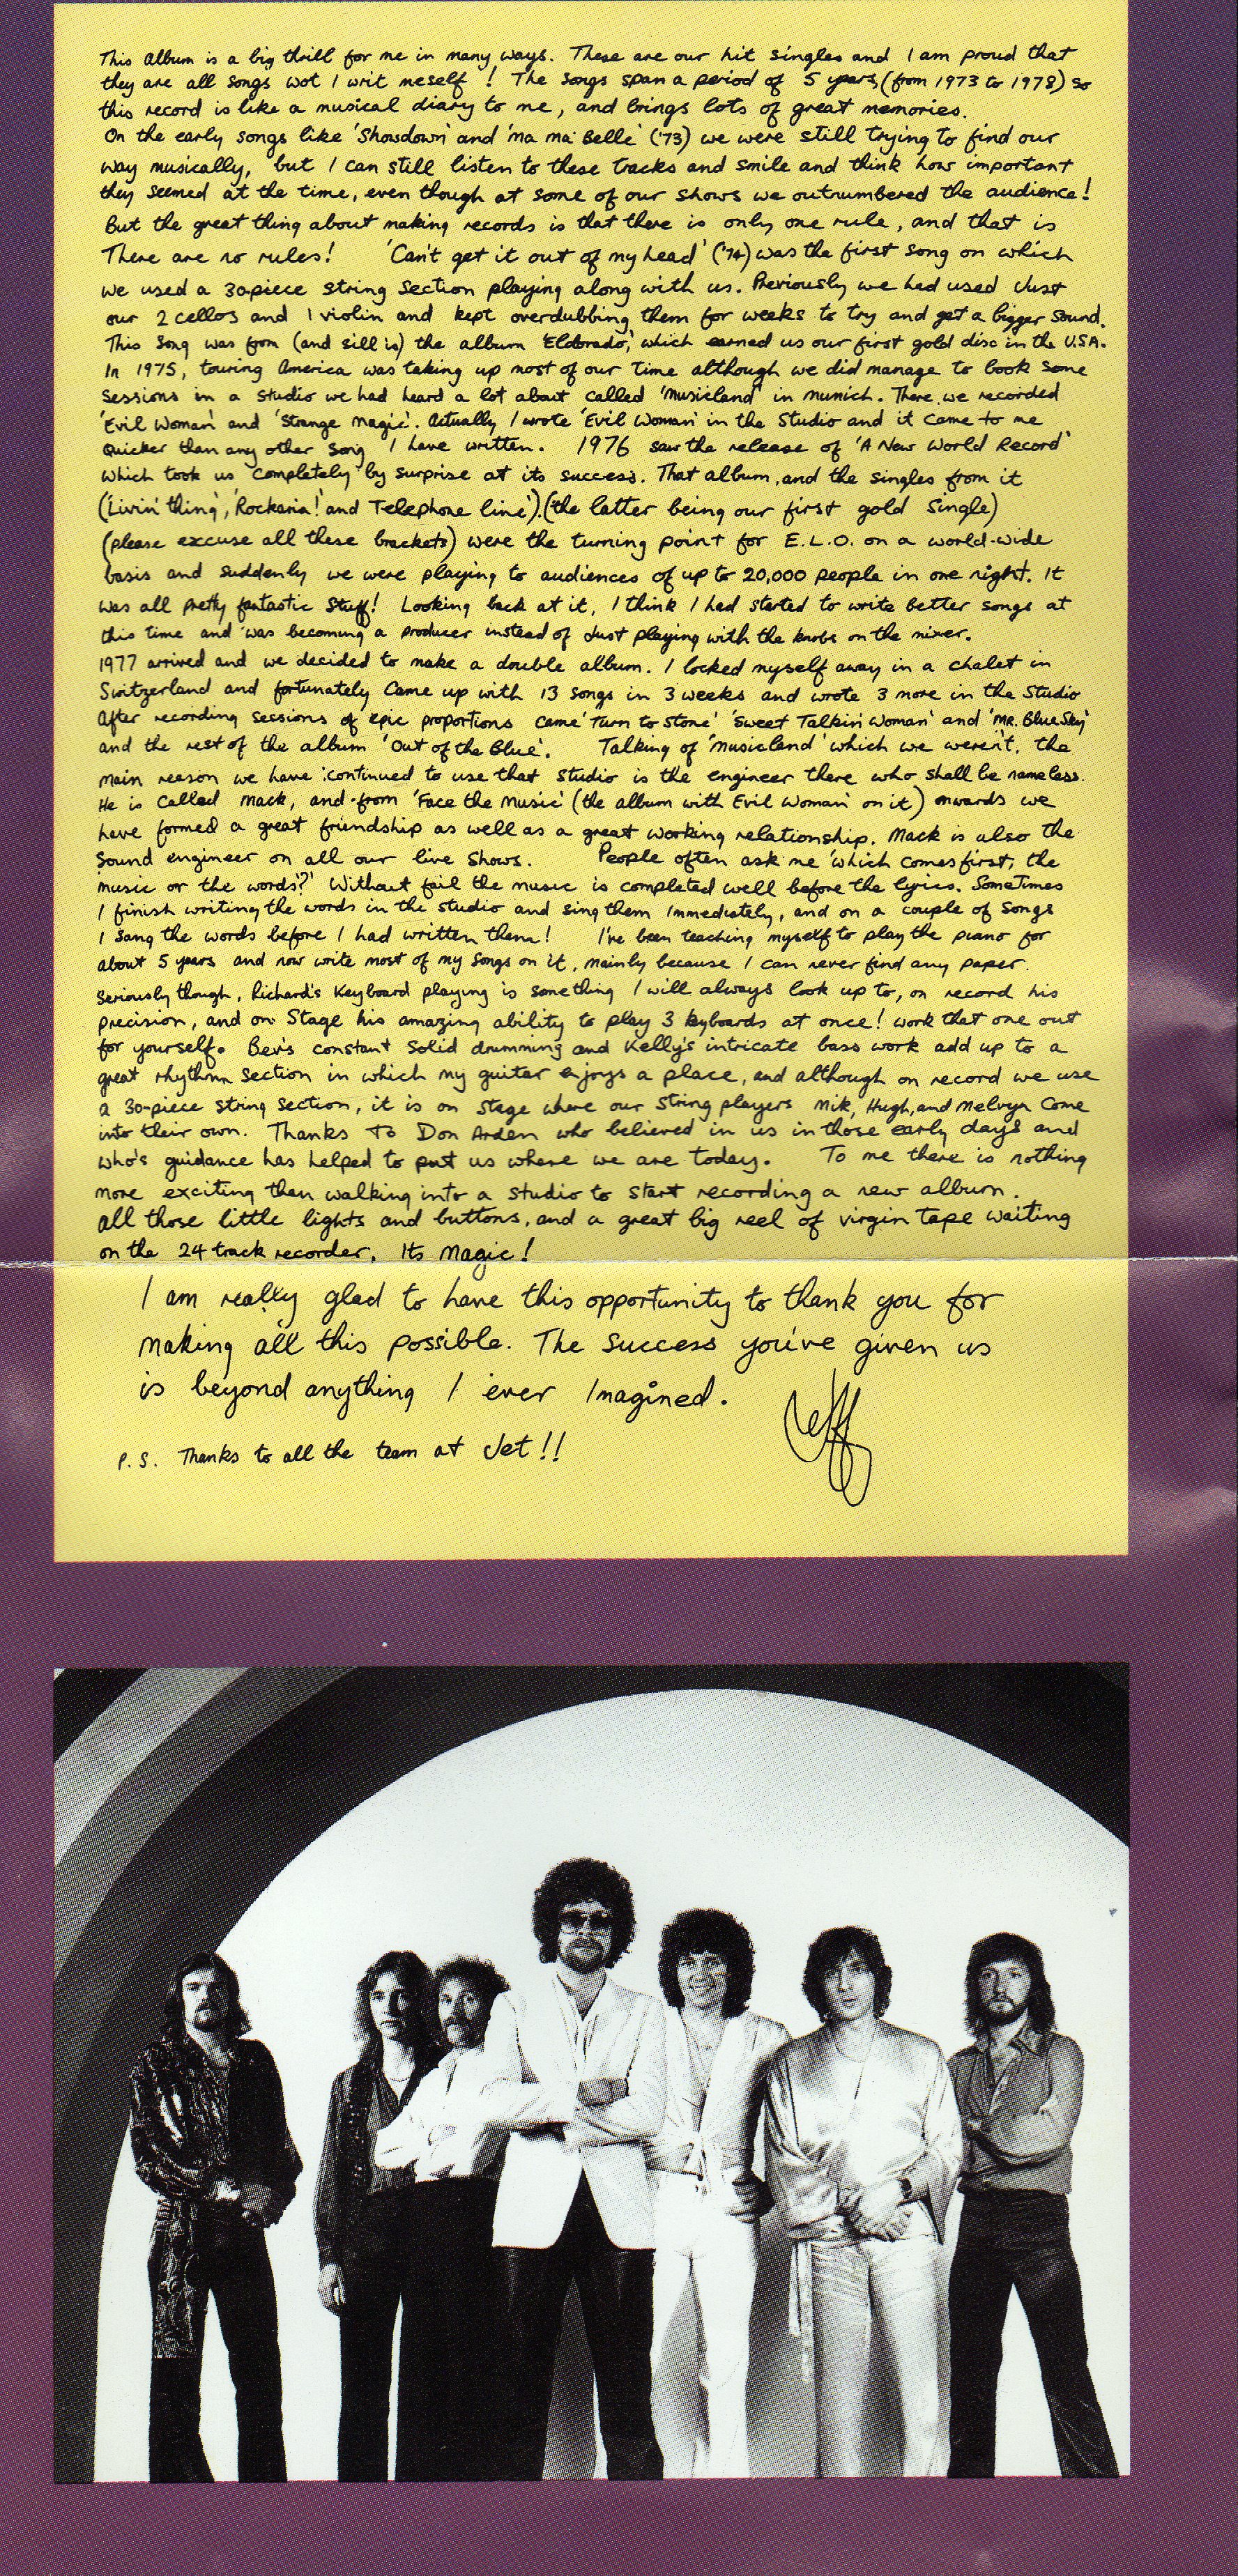 This album is a big thrill for me in many ways. These are our hit singles and I am proud that
they are all songs wot I writ meself ! The songs span a period of 5 years, (from 1973 to 1978) so
this record is like a musical diary to me, and brings lots of great memories.
On the early songs like 'Showdown' and 'ma ma Belle' ('73) we were still trying to find our
way musically, but I can still listen to these tracks and smile and think how important
they seemed at the time, even though at some of our shows we outnumbered the audience!
But the great thing about making records is that there is only one rule, and that is
There are no rules! 'Can't get it out of my head' ('74) was the first song on which
we used a 30piece string section playing along with us. Previously we had used Just
our 2 cellos and 1 violin and kept overdubbing them for weeks to try and get a bigger sound.
This song was from (and sill is) the album 'Eldorado', which earned us our first gold disc in the U.S.A.
In 1975, touring America was taking up most of our time although we did manage to book some
sessions in a studio we had heard a lot about called 'Musicland' in munich. There we recorded
'Evil Woman' and 'Strange Magic'. Actually I wrote 'Evil Woman' in the studio and it came to me
Quicker than any other song I have written. 1976 saw the release of 'A New World Record'
which took us completely by surprise at its success. That album, and the singles from it
('Livin' thing', 'Rockaria!' and Telephone line'). (the latter being our first gold single)
(please excuse all these brackets) were the turning point for E.L.O. on a world-wide
basis and suddenly we were playing to audiences of up to 20,000 people in one night. It
was all pretty fantastic stuff! Looking back at it, I think I had started to write better songs at
this time and was becoming a producer instead of Just playing with the knobs on the mixer.
1977 arrived and we decided to make a double album. I locked myself away in a chalet in
Switzerland and fortunately came up with 13 songs in 3 weeks and wrote 3 more in the Studio
After recording sessions of epic proportions came 'Turn to Stone' 'Sweet Talkin' Woman' and 'MR. Blue Sky'
and the rest of the album 'Out of the Blue'. Talking of 'musicland' which we weren't, the
main reason we have continued to use that studio is the engineer there who shall be nameless.
He is called Mack, and from 'Face the Music' (the album with Evil Woman' on it) onwards we
have formed a great friendship as well as a great working relationship. Mack is also the
sound engineer on all our live shows. People often ask me 'which comes first, the
music or the words?' Without fail the music is completed well before the lyrics. Sometimes
I finish writing the words in the studio and sing them immediately, and on a couple of songs
I sang the words before I had written them! I've been teaching myself to play the piano for
about 5 years and now write most of my songs on it, mainly because I can never find any paper.
Seriously though, Richard's Keyboard playing is something I will always look up to, on record his
precision, and on stage his amazing ability to play 3 keyboards at once! work that one out
for yourself. Bev's constant solid drumming and Kelly's intricate bass work add up to a
great rhythm section in which my guitar enjoys a place, and although on record we use
a 30-piece string section, it is on stage where our string players Mik, Hugh, and Melvyn come
into their own. Thanks to Don Arden who believed in us in those early days and
who's guidance has helped to put us where we are today. To me there is nothing
more exciting than walking into a studio to start recording a new album.
all those little lights and buttons, and a great big reel of virgin tape waiting
on the 24 track recorder. Its Magic!
I am really glad to have this opportunity to thank you for
making all this possible. The success you've given us
is beyond anything I ever Imagined.
Jeff
P.S. Thanks to all the team at Jet!!